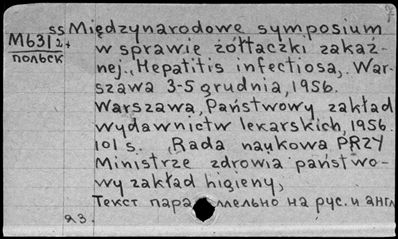 ss Międzynarodowe symposium
М63/2 + w sprawie żółtaczki zakaź-
польск nej „Hepatitis infectiosa„. War-
szawa 3-5 grudnia, 1956.
Warszawa, Państwowy zakład
wydawnictw lekarskich, 1956.
101 s. „Rada naukowa PRZY
Ministrze zdrowia państwo-
wy zakład higieny„
Текст пара мельно на рус. и англ
яз.